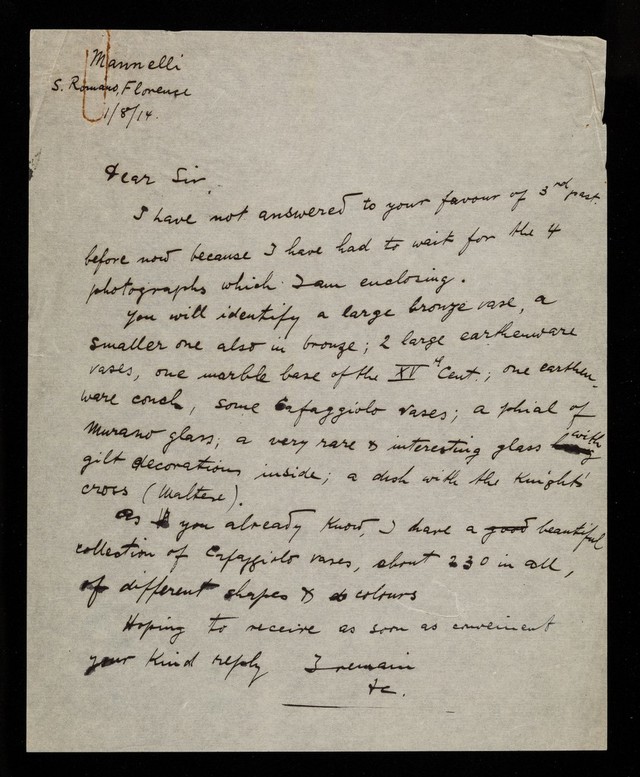 Mannelli
S. Romano, Florence
1/8/14.
Dear Sir
I have not answered to your favour of 3rd past.
before now because I have had to wait for the 4
photographs which I am enclosing.
You will identify a large bronze vase, a
smaller one also in bronze; 2 large earthenware
vases, one marble base of the XVth Cent.; one earthen-
ware conch, some Cafaggiolo vases; a phial of
Murano glass; a very rare & interesting glass with
gilt decorations inside; a dish with the Knights'
cross (Maltese).
As you already know, I have a good beautiful
collection of Cafaggiolo vases, about 230 in all,
of different shapes & colours
Hoping to receive as soon as convenient
your kind reply I remain
&c.